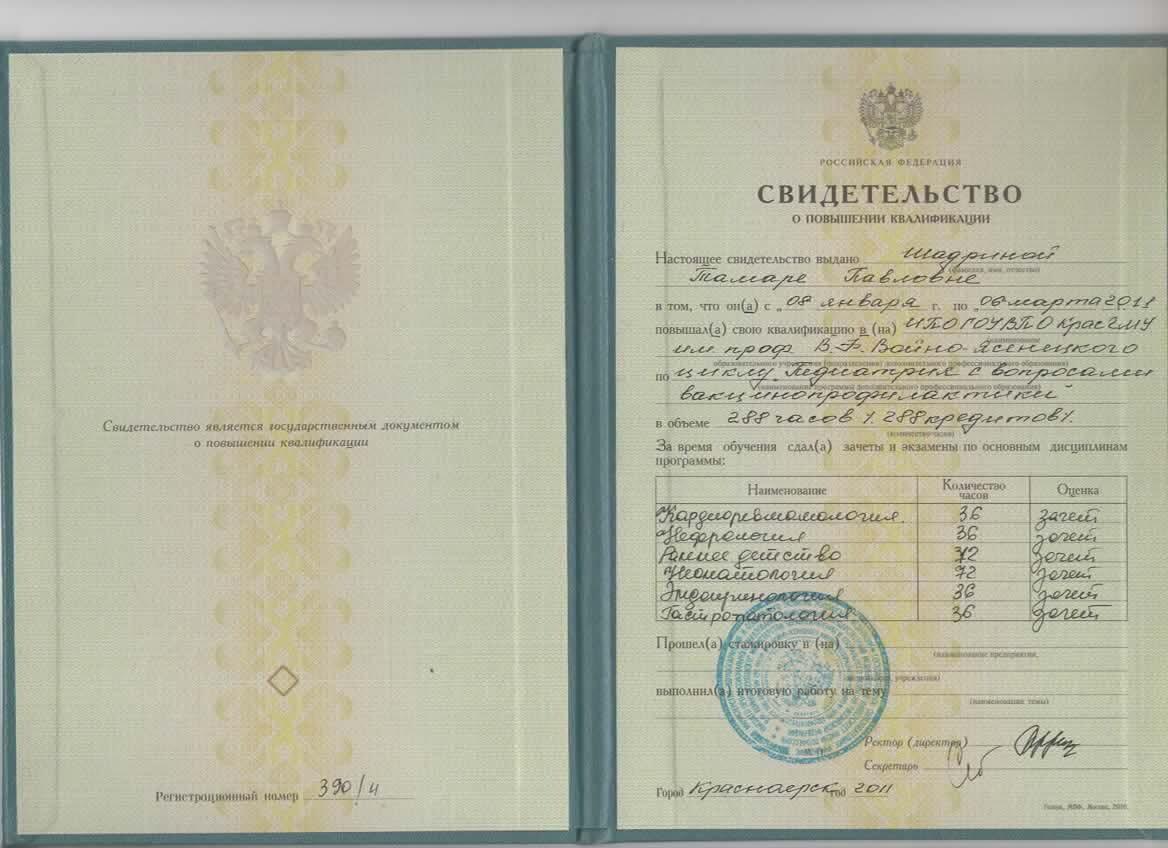 Свидетельство является государственным документом
о повышении квалификации
Регистрационный номер 390/и
РОССИЙСКАЯ ФЕДЕРАЦИЯ
СВИДЕТЕЛЬСТВО
О ПОВЫШЕНИИ КВАЛИФИКАЦИИ
Настоящее свидетельство выдано Шадриной
(фамилия, имя, отчество)
Тамаре Павловне
в том, что он(а) с „08 января г. по „06 марта 2011
повышал(а) свою квалификацию в (на) ИПО ГОУ ВПО КрасГМУ
(наименование
им проф В.Ф. Войно-Ясенецкого
образовательного учреждения (подразделения) дополнительного профессионального образования)
по циклу „Педиатрия с вопросами
(наименование программы дополнительного профессионального образования)
вакцинопрофилактики
в объеме 288 часов \ 288 кредитов \.
(количество часов)
За время обучения сдал(а) зачеты и экзамены по основным дисциплинам
программы:
Наименование Количество часов Оценка
Кардиоревматология. 36 зачет
Нефрология 36 зачет
Раннее детство 72 зачет
Неонатология 72 зачет
Эндокринология 36 зачет
Гастропатология 36 зачет
Прошел(а) стажировку в (на)
(наименование предприятия,
организации, учреждения)
выполнил(а) итоговую работу на тему
(наименование темы)
М.П.
Ректор (директор)
Секретарь
Город Красноярск год 2011
Гознак, МПФ, Москва, 2010.